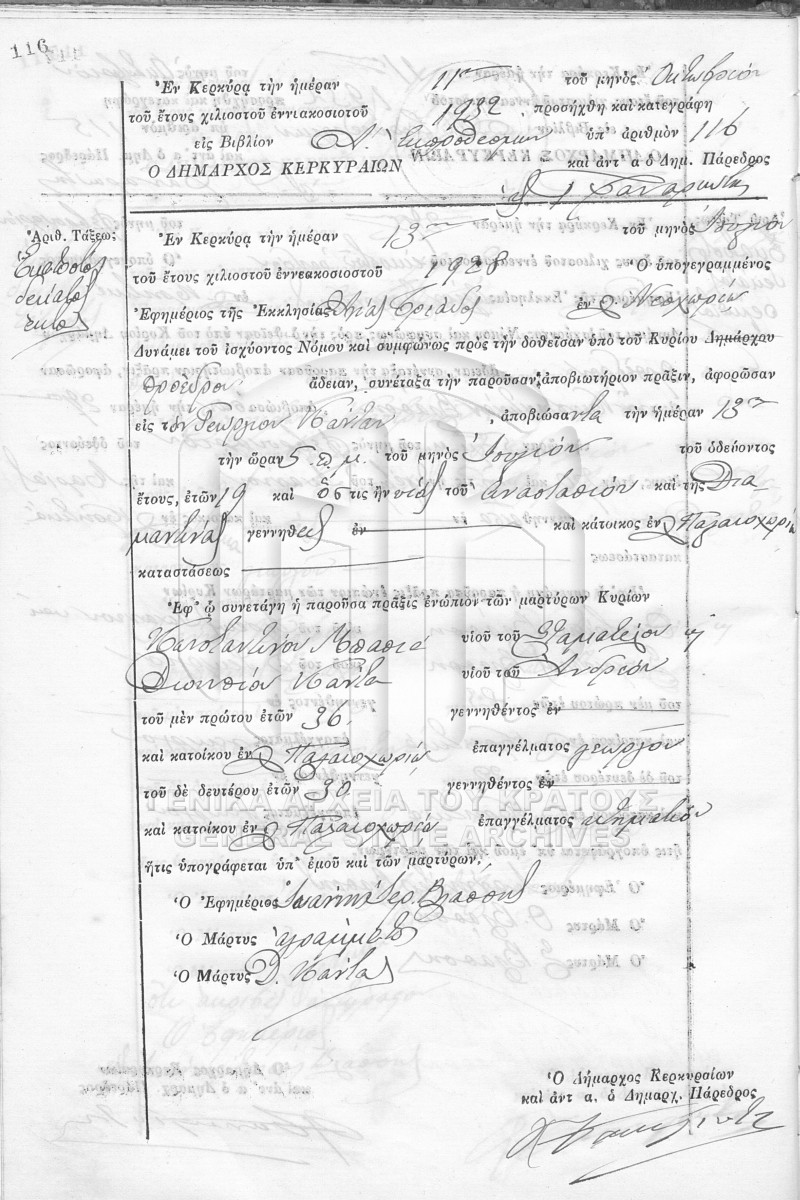 116
Ἐν Κερκύρᾳ τὴν ἡμέραν 11ην τοῦ μηνὸς Ὀκτωβρίου
τοῦ ἔτους χιλιοστοῦ ἐννιακοσιοτοῦ 1932 προσήχθη καὶ κατεγράφη
εἰς Βιβλίον Α. Ἐκπροθέσμων ὑπ' ἀριθμὸν 116
Ο ΔΗΜΑΡΧΟΣ ΚΕΡΚΥΡΑΙΩΝ καὶ ἀντ' α ὁ Δημ. Πάρεδρος
Ἀριθ. Τάξεως
Ἑκατοστὸς
δέκατος
ἕκτος
Ἐν Κερκύρᾳ τὴν ἡμέραν 13ην τοῦ μηνὸς Ἰουλίου
τοῦ ἔτους χιλιοστοῦ ἐννεακοσιοστοῦ 1928 Ὁ ὑπογεγραμμένος
Ἐφημέριος τῆς Ἐκκλησίας Ἁγίας Τριάδος ἐν Νεοχωρίῳ
Δυνάμει τοῦ ἰσχύοντος Νόμου καὶ συμφώνως πρὸς τὴν δοθεῖσαν ὑπὸ τοῦ Κυρίου Δημάρχου
Προέδρου ἄδειαν, συνέταξα τὴν παροῦσαν ἀποβιωτήριον πρᾶξιν, ἀφορῶσαν
εἰς τὸν Γεώργιον Κάνταν, ἀποβιώσαντα τὴν ἡμέραν 13ην
τὴν ὥραν 5 π.μ. τοῦ μηνὸς Ἰουλίου τοῦ ὁδεύοντος
ἔτους, ἐτῶν 19 καὶ ὅστις ἦν υἱὸς τοῦ Ἀναστασίου καὶ τῆς Δια-
μαντίνας γεννηθεὶς ἐν καὶ κάτοικος ἐν Παλαιοχωρίῳ
καταστάσεως
Ἐφ' ᾧ συνετάγη ἡ παροῦσα πρᾶξις ἐνώπιον τῶν μαρτύρων Κυρίων
Κωνσταντίνου υἱοῦ τοῦ Σταματέλου ἢ
Διονυσίου Κάντα υἱοῦ τοῦ Ἀνδρέου
τοῦ μὲν πρώτου ἐτῶν 36 γεννηθέντος ἐν
καὶ κατοίκου ἐν Παλαιοχωρίῳ ἐπαγγέλματος γεωργοῦ
τοῦ δὲ δευτέρου ἐτῶν 30 γεννηθέντος ἐν
καὶ κατοίκου ἐν Παλαιοχωρίῳ ἐπαγγέλματος κτηματίου
ἥτις ὑπογράφεται ὑπ' ἐμοῦ καὶ τῶν μαρτύρων,
Ὁ Ἐφημέριος Ἰωάννης Ἱερ. Βλάσσης
Ὁ Μάρτυς ἀγράμματος
Ὁ Μάρτυς Δ. Κάντας
Ὁ Δήμαρχος Κερκυραίων
καὶ ἀντ α. ὁ Δημαρχ. Πάρεδρος
ΓΕΝΙΚΑ ΑΡΧΕΙΑ ΤΟΥ ΚΡΑΤΟΥΣ
GENERAL STATE ARCHIVES